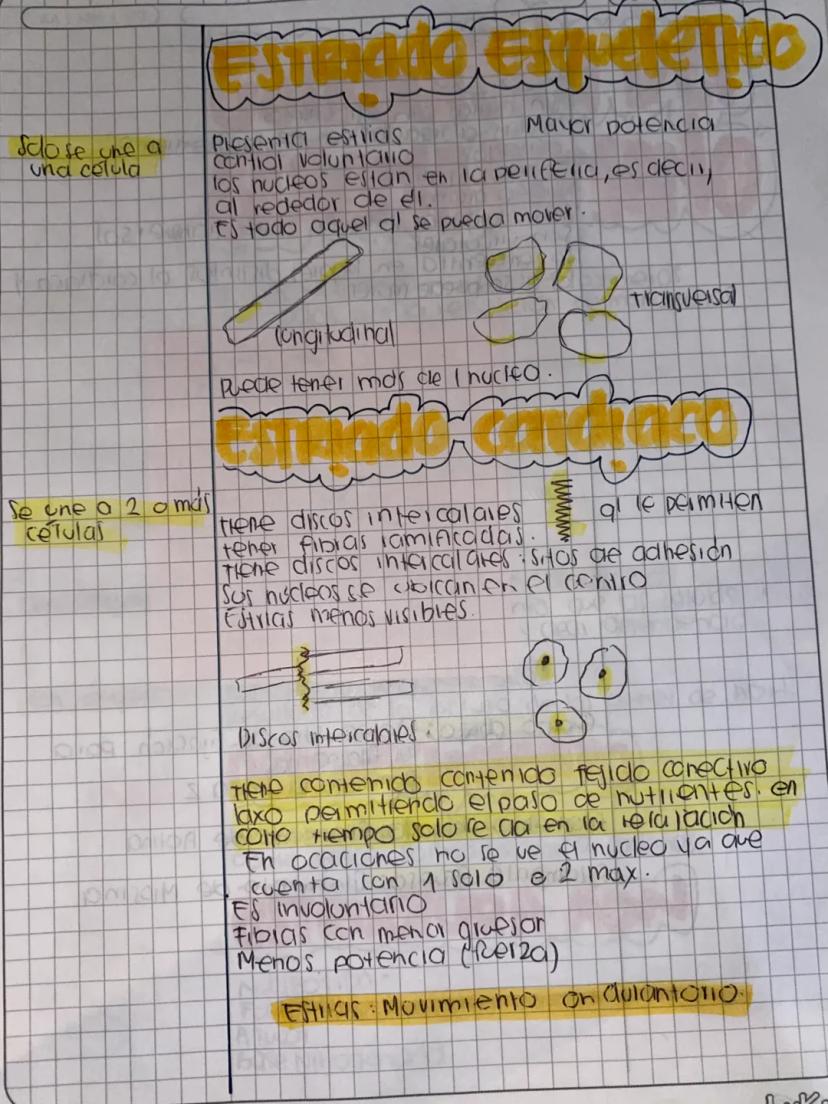 Estriado Esquelético
Solo se une a
una célula
Mayor potencia
Presenta estrias
control voluntario
los nucleos estan en la periferia, es decir,
al rededor de el.
Es todo aquel q' se pueda mover.
longitudinal
transversal
Puede tener más de 1 nucleo.
Estriado cardiaco
Se une a 2 o más
células
tiene discos intercalares
q' le permiten
tener fibras ramificadas.
Tiene discos intercalares: sitios de adhesión
Sus núcleos se ubican en el centro
Estrias menos visibles.
Discos intercalares.
Tiene contenido contenido tejido conectivo
laxo permitiendo el paso de nutrientes. en
corto tiempo solo se da en la relajación
En ocaciones no se ve el nucleo ya que
cuenta con 1 solo o 2 max.
Es involuntario
Fibras con menor grueso
Menos potencia (fuerza)
Estrias: Movimiento